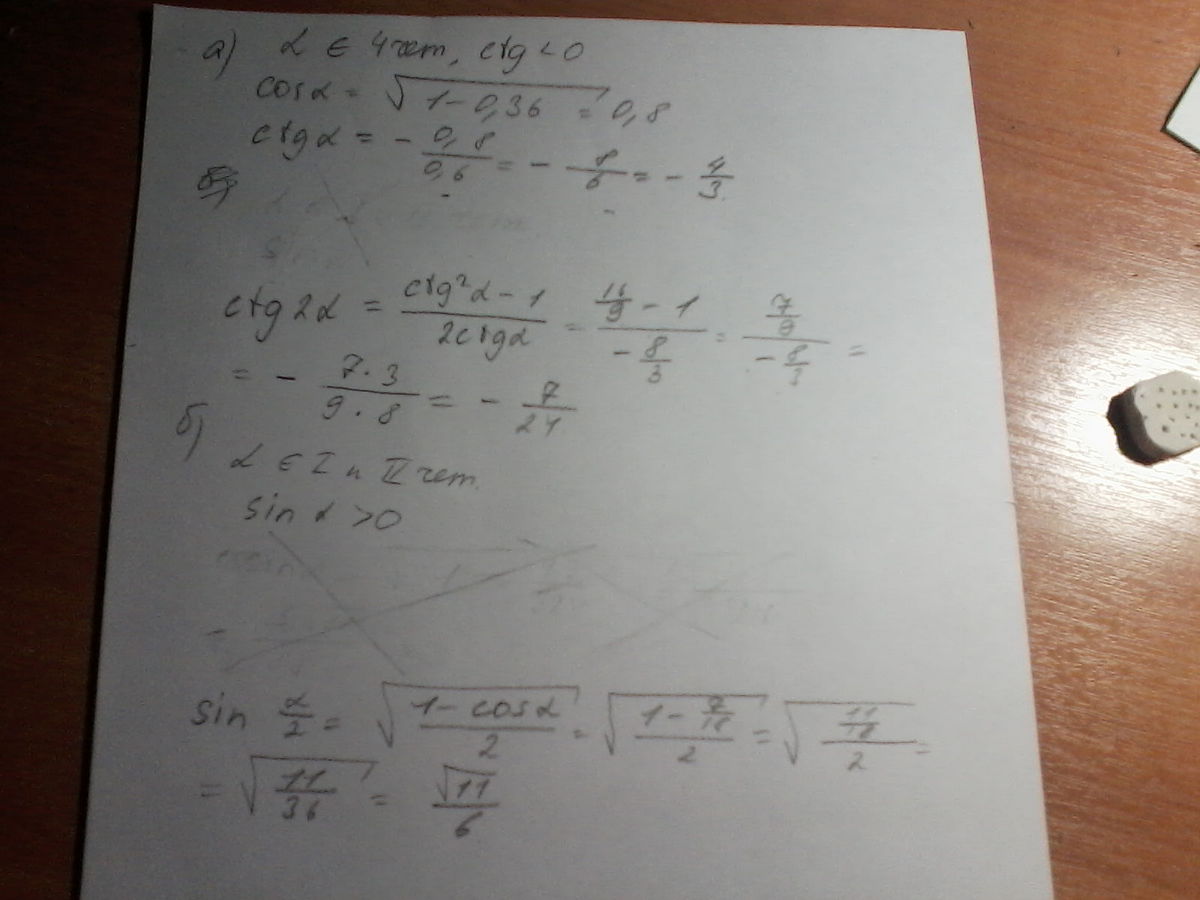 а) α ∈ 4 чет, ctg < 0
cosα = √(1 - 0,36) = 0,8
ctgα = - 0,8/0,6 = - 8/6 = - 4/3
ctg2α = (ctg²α - 1)/(2ctgα) = (16/9 - 1)/(-8/3) = (7/9)/(-8/3) =
= - (7·3)/(9·8) = - 7/24
б)
α ∈ I и II чет.
sin α > 0
sin α/2 = √((1 - cosα)/2) = √((1 - 7/18)/2) = √((11/18)/2) =
= √(11/36) = √11/6